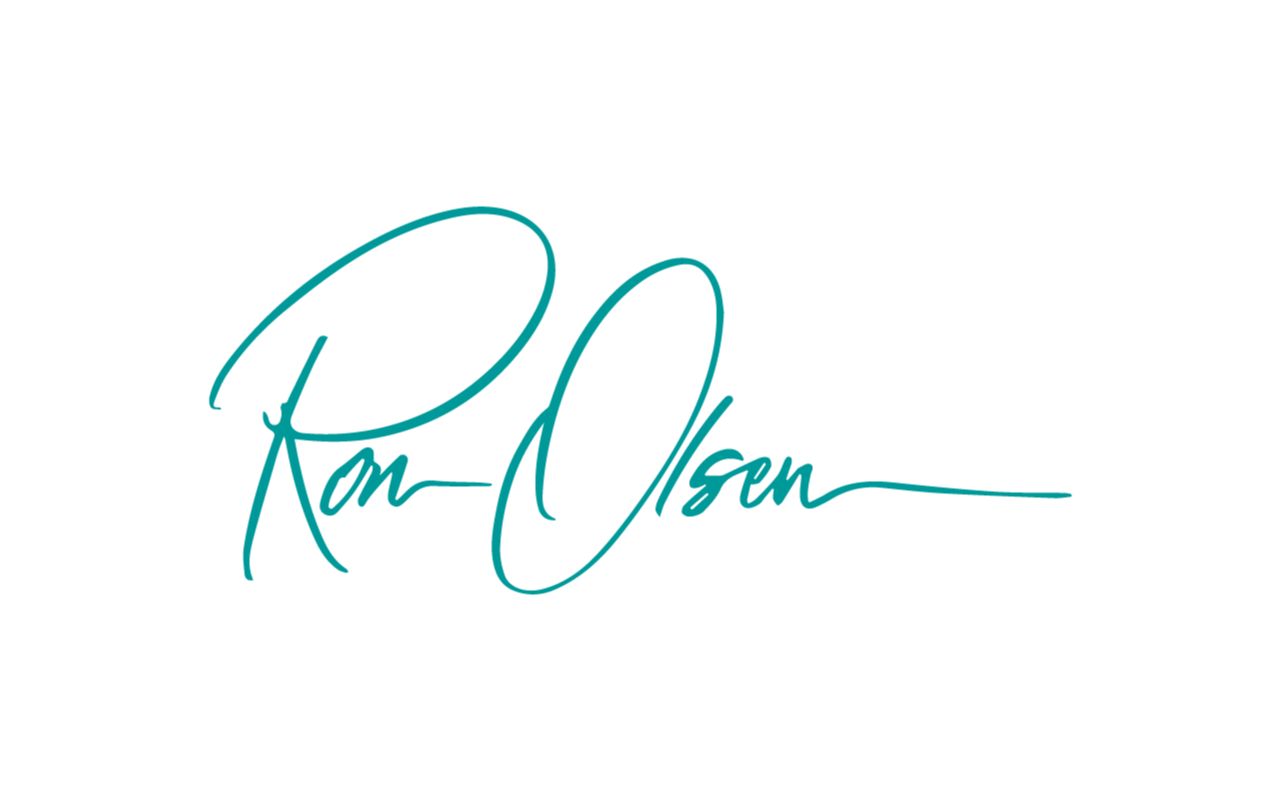 Ron Olsen